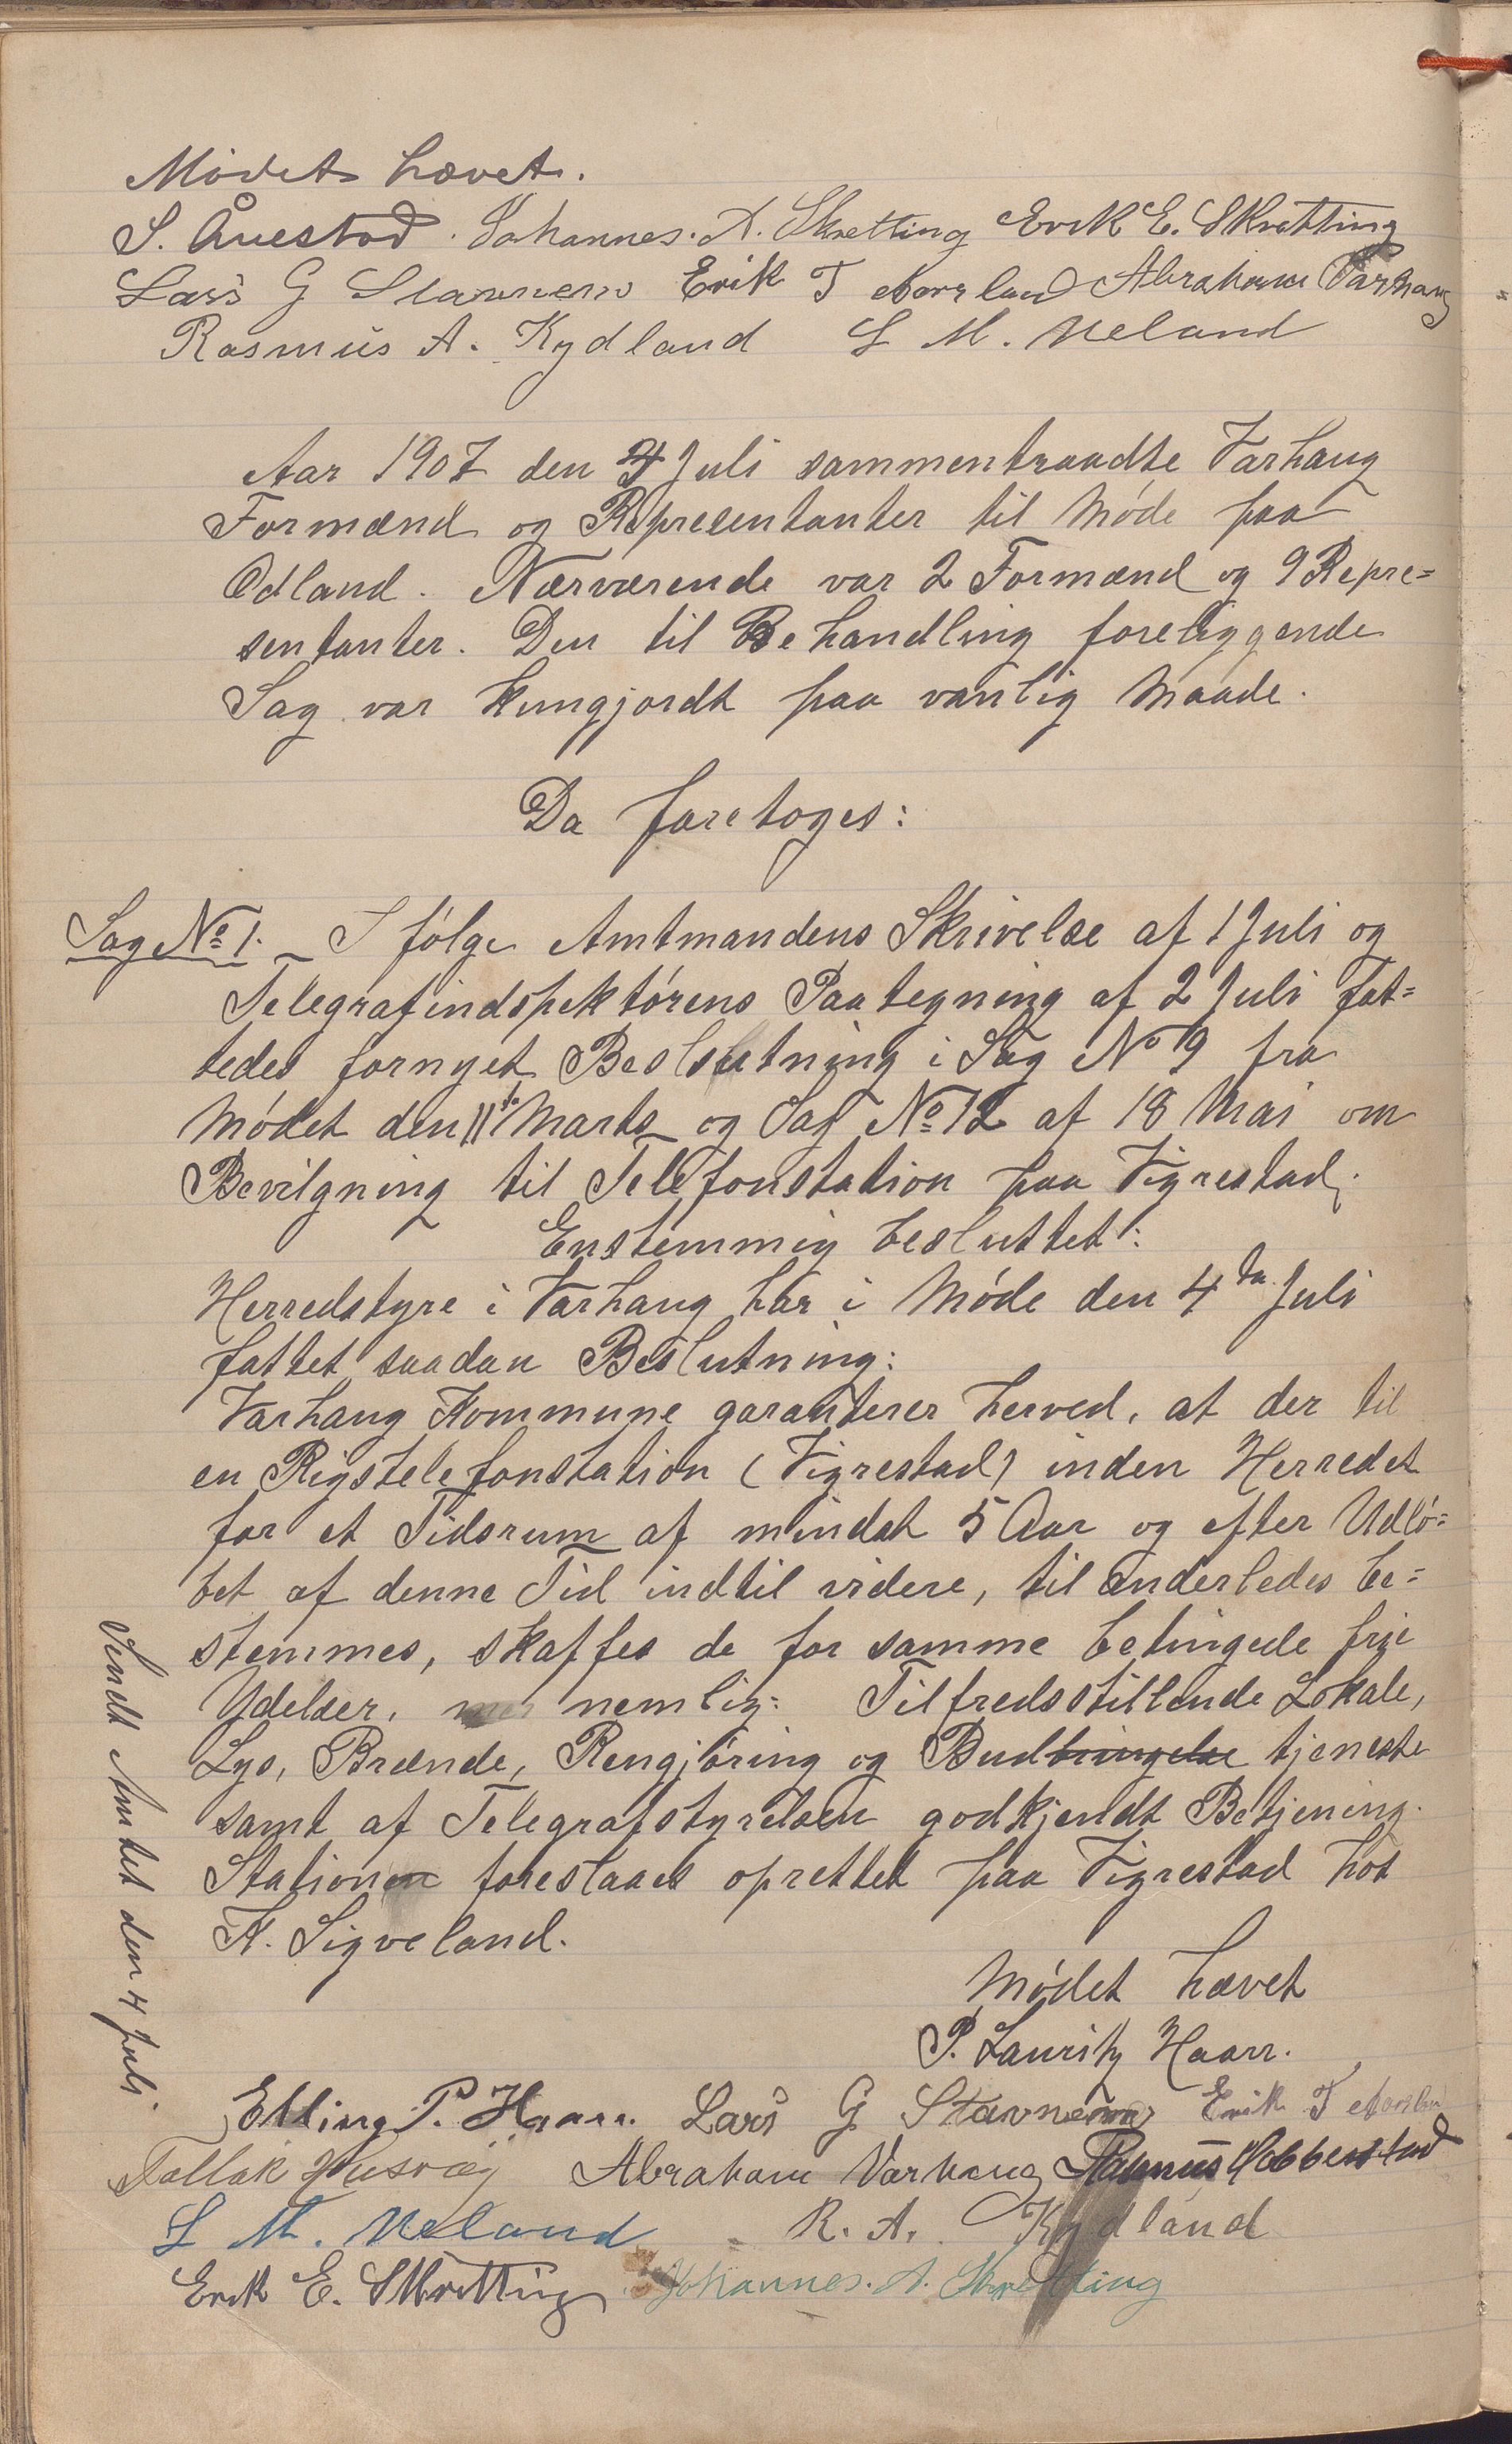 Mødet hævet.
S. Ånestad. Johannes. A. Skretting Erik E. Skretting
Lars G Stavnem Erik T Aarsland Abraham Varhaug
Rasmus A. Kydland L M. Ueland
Aar 1907 den 4 Juli sammentraadte Varhaug
Formænd og Repræsentanter til Møde paa
Odland. Nærværende var 2 Formænd og 9 Repre=
sentanter. Den til Behandling foreliggende
Sag var kungjordt paa vanlig Maade.
Da foretoges:
Sag No 1. I følge Amtmandens Skrivelse af 1 Juli og
Telegrafindspektørens Paategning af 2 Juli fat=
tedes fornyet Beslutning i Sag No 9 fra
Mødet den 11te Marts og Sag No 12 af 18 Mai om
Bevilgning til Telefonstation paa Vigrestad.
Enstemmig besluttet:
Herredstyre i Varhaug har i Møde den 4de Juli
fattet saadan Beslutning:
Varhaug Kommune garanterer herved, at der til
en Rigstelefonstation (Vigrestad) inden Herredet
for et Tidsrum af mindst 5 Aar og efter Udlø=
bet af denne Tid indtil videre, til anderledes be=
stemmes, skaffes de for samme betingede frie
Ydelser, nemlig: Tilfredsstillende Lokale,
Lys, Brænde, Rengjøring og Budbringelse tjeneste
samt af Telegrafstyrelsen godkjendt Betjening.
Stationen foreslaaes oprettet paa Vigrestad hos
K. Sigveland.
Mødet hævet
P. Lauritz Haarr.
Elling P. Haarr. Lars G Stavnem Erik T Aarsland
Tallak Husvæg Abraham Varhaug Rasmus Hobberstad
L M. Ueland R. A. Kydland
Erik E. Skretting Johannes. A. Skretting
Sendt Amtet den 4 Juli.